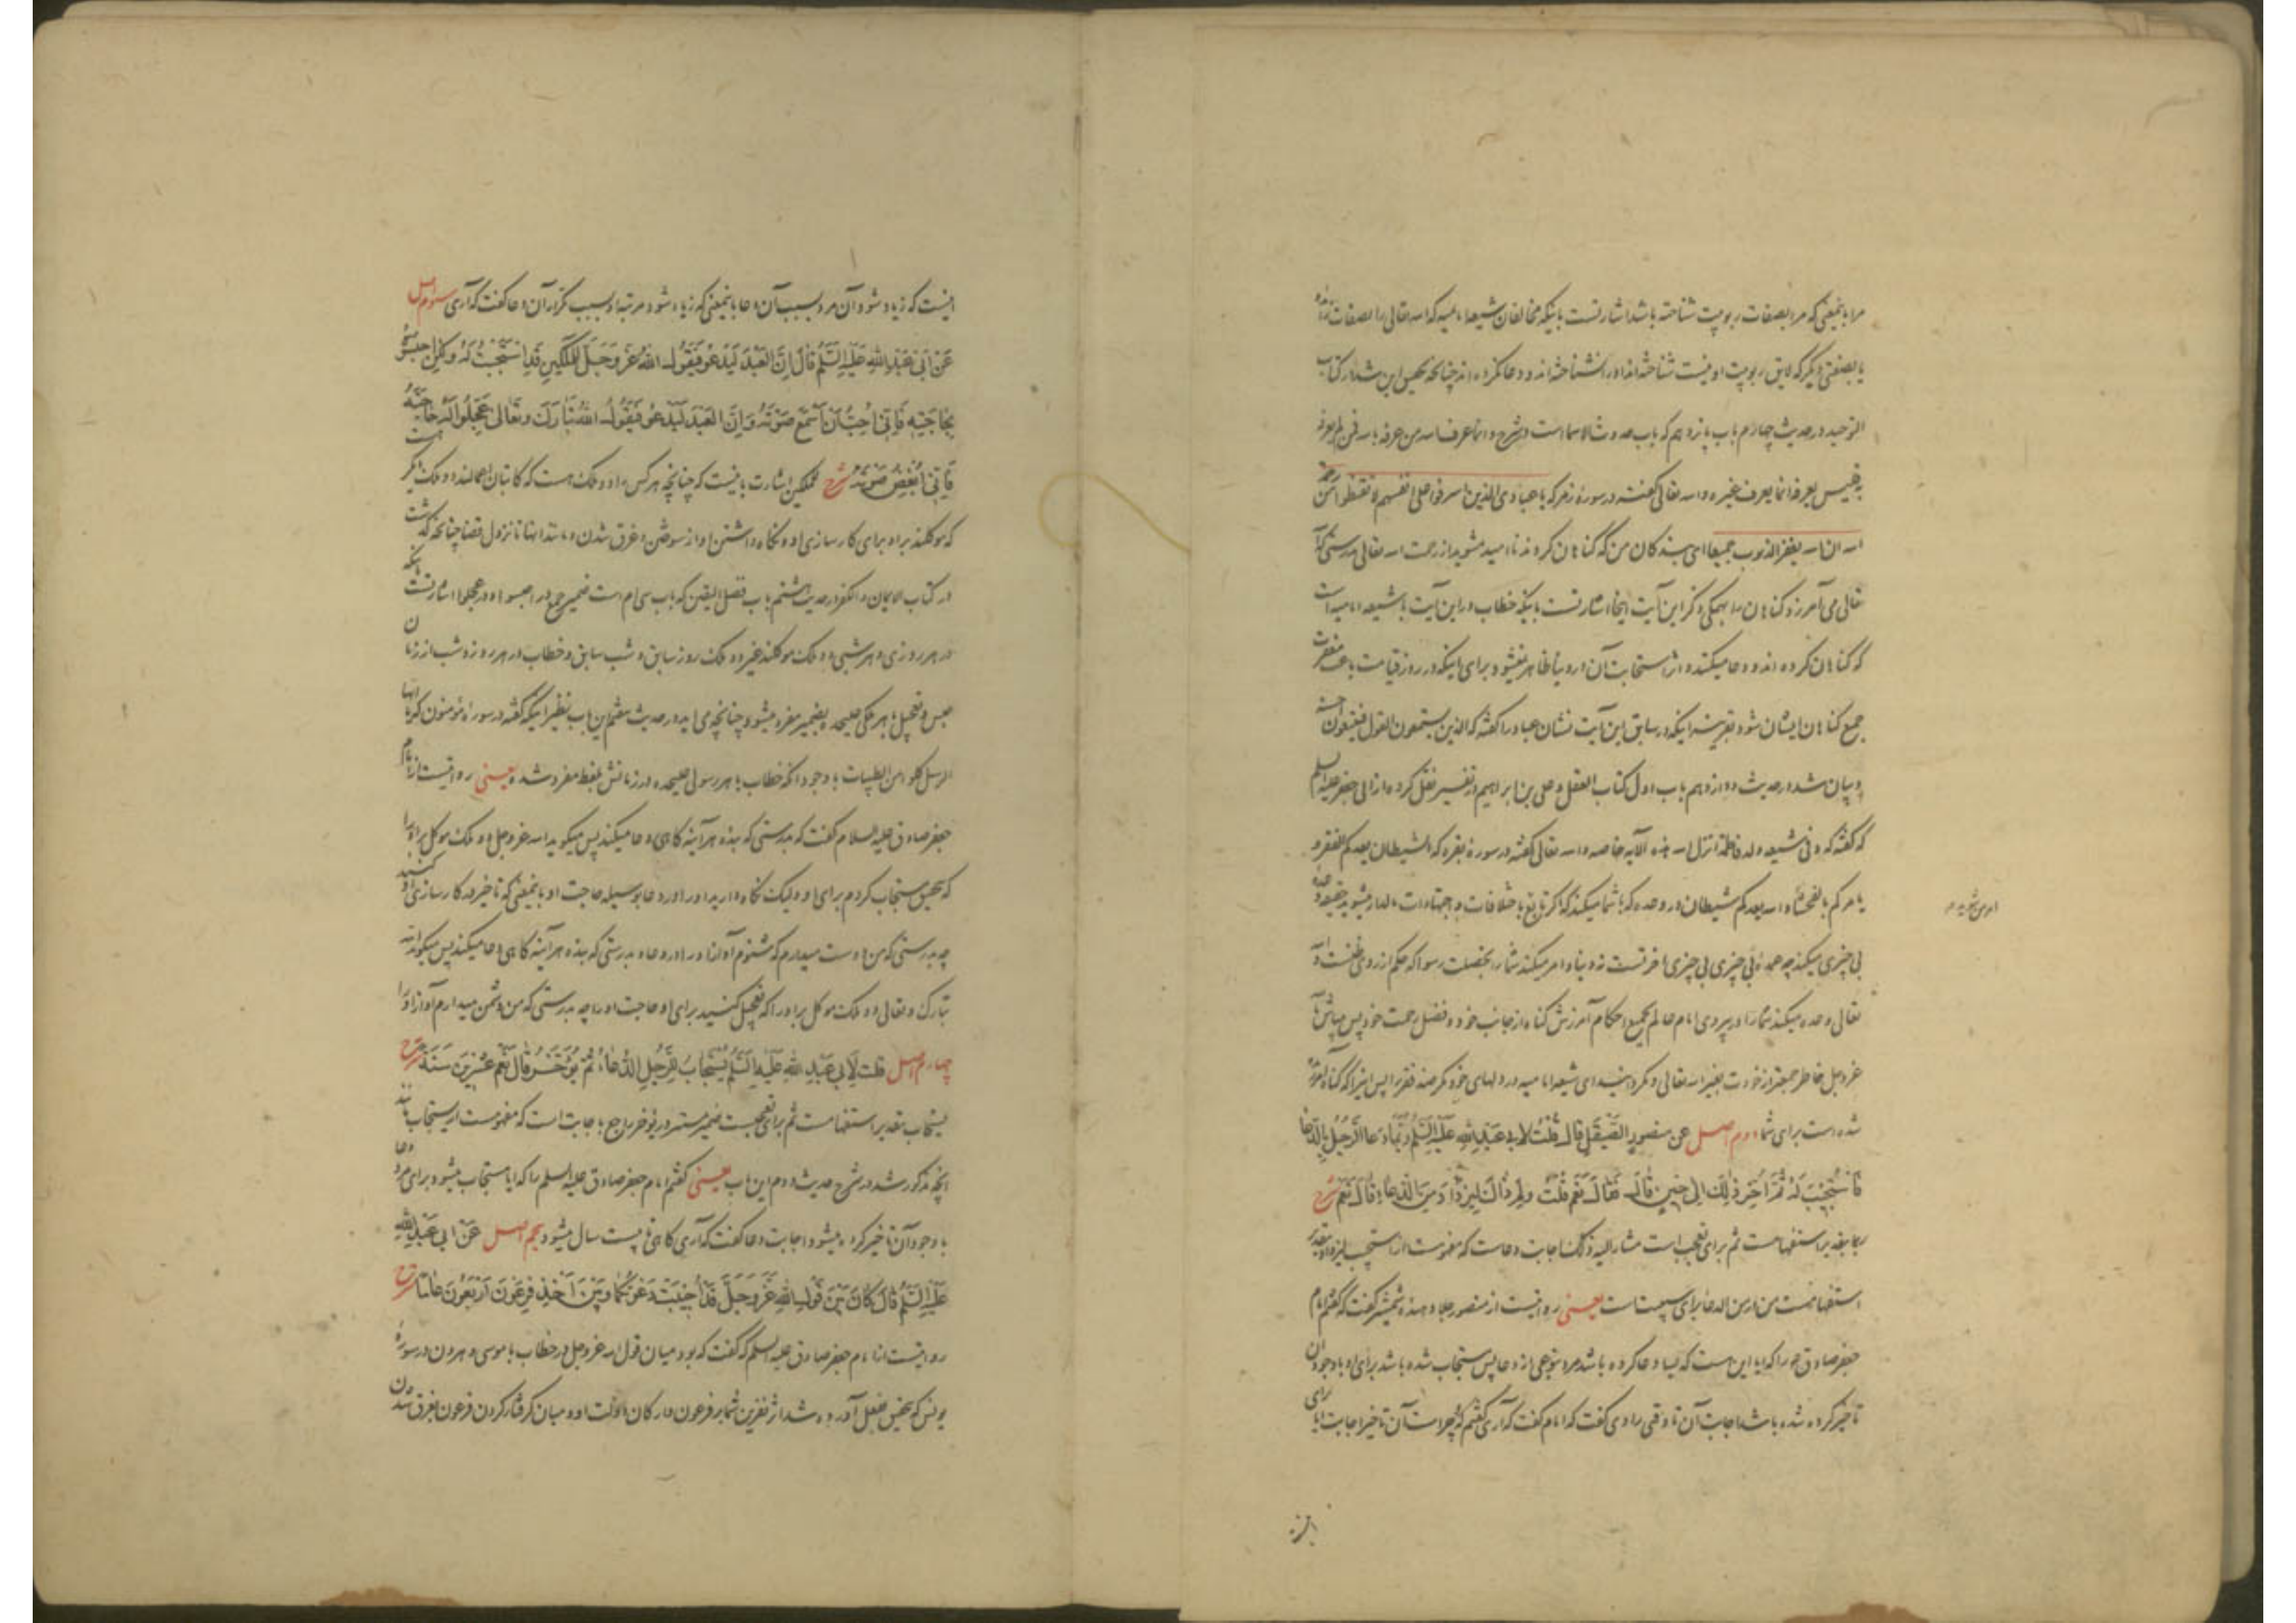 مرا باینمعنی که مرا بصفات ربوبیت شناخته باشد اشارتست باینکه مخالفان شیعه امامیه که الله تعالی را بصفات
یا بصفتی دیگر که لایق ربوبیت او نیست شناخته‌اند او را نشناخته‌اند و دعا نکرده‌اند چنانچه بیان شد در کتاب
التوحید در حدیث چهارم باب پانزدهم که باب حدوث الاسما است در شرح و انما عرف الله من عرفه بالله فمن لم یعرفه
به فلیس یعرفه انما یعرف غیره و الله تعالی گفته در سوره زمر که یا عبادی الذین اسرفوا علی انفسهم لا تقنطوا من رحمة
الله ان الله یغفر الذنوب جمیعا ای بندگان من که گناهان کردند ناامید مشوید از رحمت الله تعالی بدرستی که الله
تعالی می آمرزد گناهان را بهمگی ذکر این آیت اینجا اشارتست باینکه خطاب در این آیت با شیعه امامیه است
که گناهان کرده اند و دعا میکنند و اثر استجابت آن در دنیا ظاهر نمیشود برای اینکه در روز قیامت باعث مغفرت
جمیع گناهان ایشان شود بقرینه اینکه در سابق این آیت نشان عباد را گفته که الذین یستمعون القول فیتبعون احسنه
و بیان شد در حدیث دوازدهم باب اول کتاب العقل و علی بن ابراهیم در تفسیر نقل کرده از ابی جعفر علیه السلام
که گفته که و فی شیعة ولد فاطمة انزل الله هذه الآیه خاصه و الله تعالی گفته در سوره بقره که الشیطان یعدکم الفقر و
یامرکم بالفحشاء و الله یعدکم شیطان در وعده که با شما میکند که اگر تابع اختلافات و اجتهادات
بی چیزی میکند چه همه بی چیزی بی چیزی آخرتست نه دنیا و امر میکند شما را بخصلت رسوا که حکم از روی ظنست و الله
تعالی وعده میکند شما را در پیروی امام عالم بجمیع احکام آمرزش گناه از جانب خود و فضل رحمت خود پس
عز و جل خاطر جمعتر از خودت بغیر الله تعالی و مگردانید ای شیعه امامیه در دلهای خود مگر
شده است برای شما دوم اصل عن منصور الصیقل قال قلت لابی عبدالله علیه السلم ربما دعا الرجل بالدعا
فاستجیب له ثم اخر ذلک الی حین قال فقال نعم قلت ولم ذاک لیزداد من الدعاء قال نعم شرح
ربما بتقدیر استفهامست ثم برای تعجب است مشار الیه ذلک اجابت دعاست که مفهومست از استجیب لیزداد بتقدیر
استفهامست من در من الدعا برای سببیت است یعنی روایتست از منصور جلا دهنده شمشیر گفت که گفتم امام
جعفر صادق ع را که ایا این هست که بسا دعا کرده باشد مرد بنوعی از دعا پس مستجاب شده باشد برای او با وجود آن
تاخیر کرده شده باشد اجابت آن تا وقتی راوی گفت که امام گفت که آری گفتم که چراست آن تاخیر اجابت ایا برای
اینست که زیاد شود آن مرد بسبب آن دعا باینمعنی که زیاد شود مرتبه او بسبب تکرار آن دعا گفت که آری سوم اصل
عن ابی عبدالله علیه السلم قال ان العبد لیدعو فیقول الله عز وجل للملکین قد استجبت له ولکن احبسوه
بحاجته فانی احب ان اسمع صوته وان العبد لیدعو فیقول الله تبارک وتعالی عجلوا له حاجته
فانی ابغض صوته شرح للملکین اشارت باینست که چنانچه هر کس را دو ملک هست که کاتبان اعمالند دو ملک دیگر هست
که موکلند براو برای کارسازی او و نگاه داشتن او از سوختن و غرق شدن و مانند اینها تا نزول قضا چنانچه گذشت
در کتاب الایمان و الکفر در حدیث هشتم باب فضل الیقین که باب سی ام است ضمیر جمع در احبسوه و در عجلوا اشارتست باینکه
در هر روزی و هر شبی دو ملک موکلند غیر دو ملک روز سابق و شب سابق و خطاب در هر روز و شب از زمان
حبس و تعجیل با هر ملکی علیحده بضمیر مفرد میشود چنانچه می آید در حدیث هفتم این باب نظیر اینکه گفته در سوره مؤمنون که یا ایها
الرسل کلوا من الطیبات با وجود آنکه خطاب با هر رسولی علیحده در زمانش بلفظ مفرد شده یعنی روایتست از امام
جعفر صادق علیه السلام گفت که بدرستی که بنده هرآینه گاهی دعا میکند پس میگوید الله عز وجل دو ملک موکل براو را
که بتحقیق مستجاب کردم برای او و لیکن نگاه دارید او را در دعا بوسیله حاجت او باینمعنی که تاخیر در کارسازی او کنید
چه بدرستی که من دوست میدارم که شنوم آواز او را در دعا و بدرستی که بنده هرآینه گاهی دعا میکند پس میگوید الله
تبارک و تعالی دو ملک موکل براو را که تعجیل کنید برای او حاجت او را چه بدرستی که من دشمن میدارم آواز او را
چهارم اصل قلت لابی عبدالله علیه السلم یستجاب للرجل الدعاء ثم یؤخر قال نعم عشرین سنة شرح
یستجاب بتقدیر استفهامست ثم برای تعجبست ضمیر مستتر در یؤخر راجع باجابت است که مفهومست از یستجاب مانند
آنچه مذکور شد در شرح حدیث دوم این باب یعنی گفتم امام جعفر صادق علیه السلم را که ایا مستجاب میشود برای مرد دعا
با وجود آن تاخیر کرده میشود اجابت دعا گفت که آری گاهی تا بیست سال میشود پنجم اصل عن ابی عبدالله
علیه السلم قال کان بین قول الله عز وجل قد اجیبت دعوتکما وبین اخذ فرعون اربعون عاما شرح
روایتست از امام جعفر صادق علیه السلم که گفت که بود میان قول الله عز وجل در خطاب با موسی و هرون در سوره
یونس که بتحقیق بفعل آورده شد اثر نفرین شما بر فرعون و ارکان دولت او و میان گرفتار کردن فرعون بغرق شدن